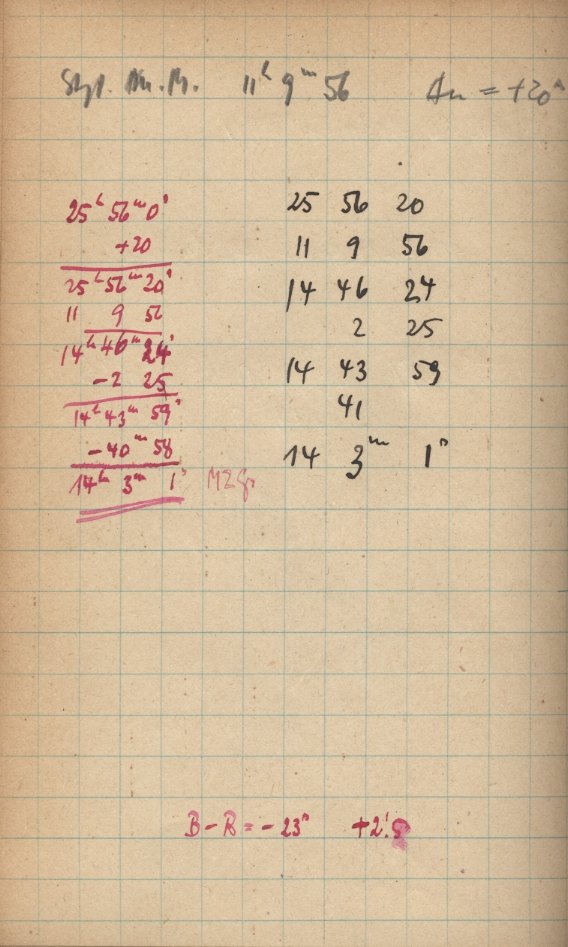 11ʰ 9ᵐ 56 Δu = +20ˢ
25ʰ 56ᵐ 0ˢ
+20
25ʰ 56ᵐ 20ˢ
11 9 56
14ʰ 46ᵐ 24ˢ
-2 25
14ʰ 43ᵐ 59ˢ
-40ᵐ 58
14ʰ 3ᵐ 1ˢ
25 56 20
11 9 56
14 46 24
2 25
14 43 59
41
14 3ᵐ 1ˢ
B-R = -23ˢ +2'.5